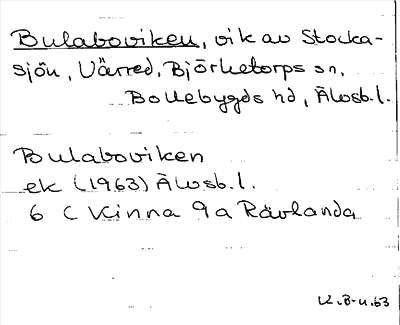 Bulaboviken, vik av Stocka-
sjön, Värred, Björketorps sn,
Bollebygds hd, Älvsb.l.
Bulaboviken
ek (1963) Älvsb.l.
6 C Kinna 9a Rävlanda
K.B-n.63